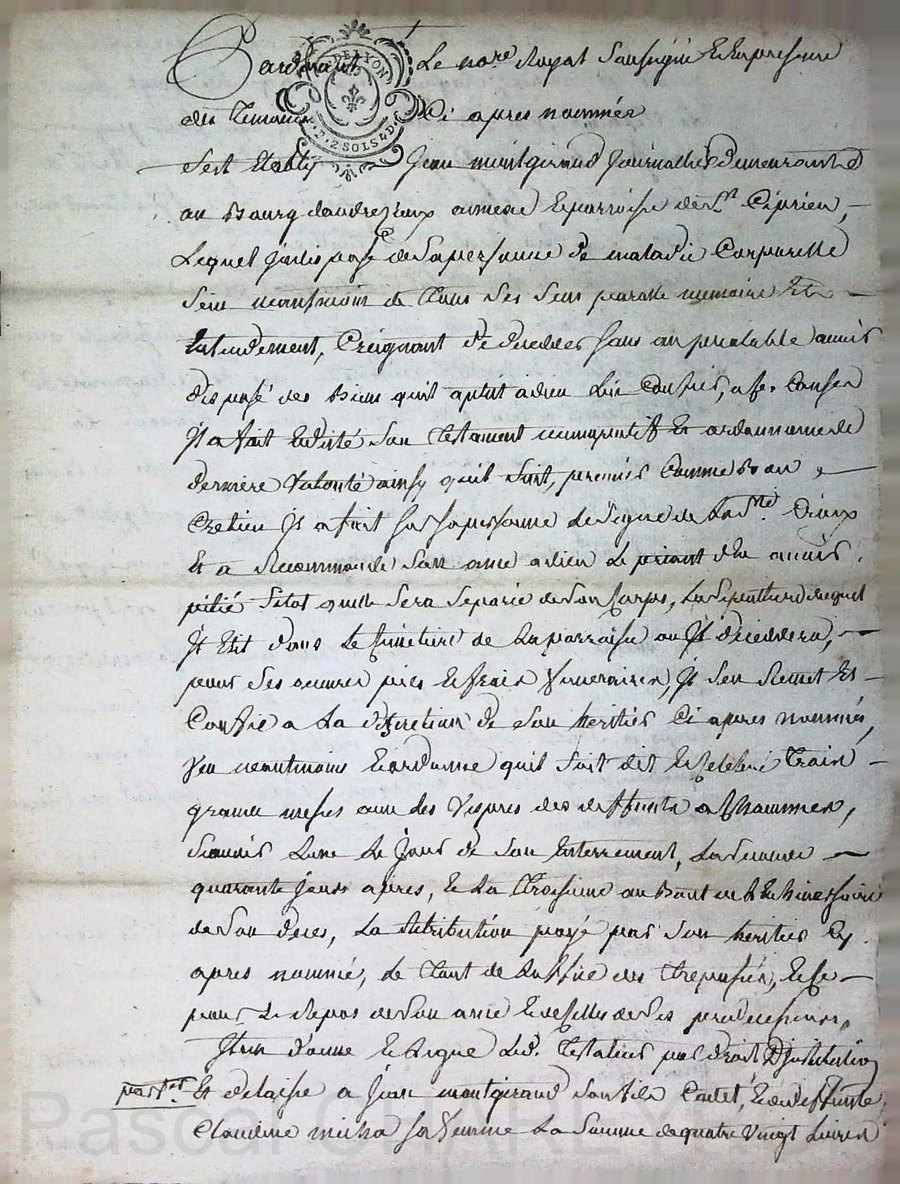 Pardevant Le no.re Royal Soussigné Et En presance
des temoins Ci apres nommés
S'est Etably Jean montgiraud Journallier demeurant
au Bourg d'andrezieux annexe Et parroisse de St Ciprien,
Lequel Indisposé de Sa personne de maladie Corporelle
Sein neanmoins de tous Ses Sens parolle memoire Et
Entendement, Creignant de deceder Sans au prealable avoir
disposé des Biens qu'il a plut a dieu Lui Confier, a Ses Causes
Il a fait Et dicté Son testament nuncupatif Et ordonnance de
derniere Volonté ainsy qu'il Suit, premier Comme Bon
Cretien Il a fait Sur Sa personne Le Signe de La Ste Croix
Et a Recommandé Son ame a dieu Le priant d'En avoir
pitié Sitot quelle Sera Separée de Son Corps, La Sepulture duquel
Il Elit dans Le Cimetiere de La parroisse ou Il decedera,
pour Ses oeuvres pies Et frais funeraires, Il S'en Remet Et
Confie a La discretion de Son heritier Ci apres nommé,
Veu neantmoins Et ordonne qu'il Soit dit Et Celebré trois
grandes messes avec des Vepres des deffunts a
Scavoir L'une Le Jour de Son Enterrement, La Seconde
quarante Jours apres, Et La troisieme au Bout de L'Anniversaire
de Son deces, La Retribution payé par Son heritier Cy
apres nommé, Le tout de L'office des trepassés, Et Ce
pour Le Repos de Son ame Et de Celles de Ses predecesseurs,
Item donne Et Legue Led. testateur par droit D'Institution
part.re Et delaisse a Jean montgiraud Son fils Cadet, Et de deffunte
Claudine micha Sa femme La Somme de quatre Vingt Livres
G. DE LYON
P. P. 2 SOLS 4 D.
Pascal CHALEYAT